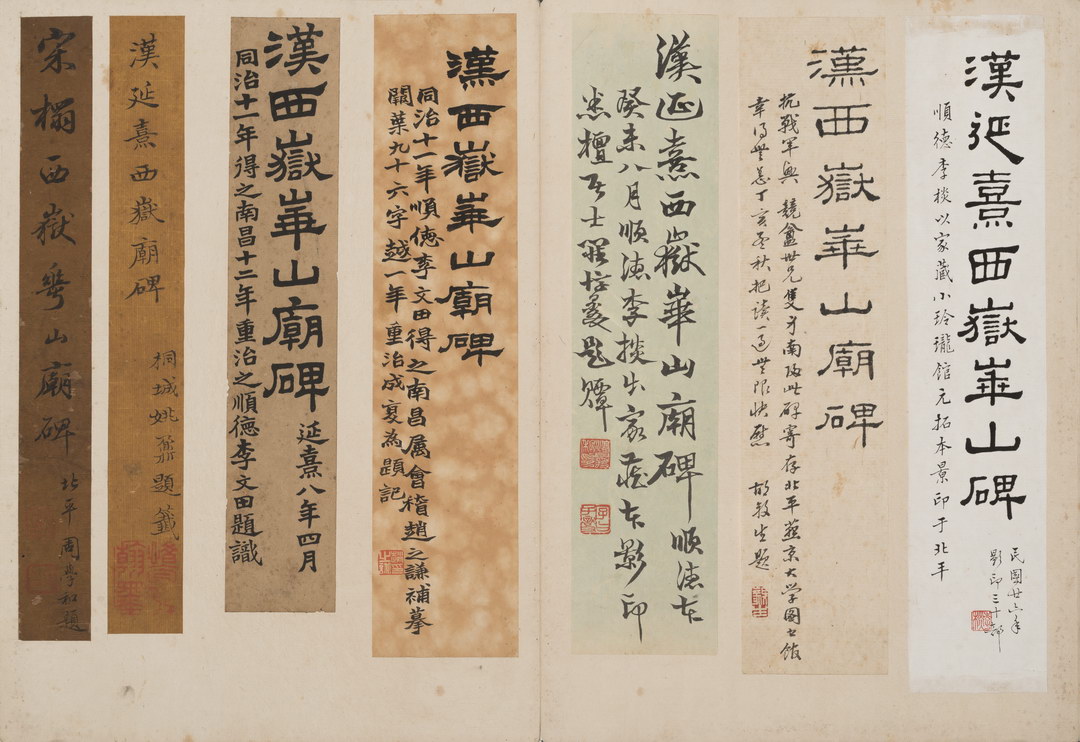 漢延熹西嶽華山碑
順德李棪以家藏小玲瓏館元拓本景印于北平
民國廿六年
影印三十部
漢西嶽華山廟碑
抗戰軍興 競盦世兄隻身南歸此碑寄存北平燕京大學圖書館
幸得無恙丁亥孟秋把讀一過無限快慰
敬生題
漢延熹西嶽華山廟碑 順德本
癸未八月順德李棪出家藏本影印
題
漢西嶽華山廟碑
同治十一年順德李文田得之南昌屬會稽趙之謙補摹
闕葉九十六字越一年重治成夏為題記
漢西嶽華山廟碑 延熹八年四月
同治十一年得之南昌十二年重治之順德李文田題識
漢延熹西嶽廟碑
桐城姚鼐題籤
宋榻西嶽華山廟碑
北平周學和題